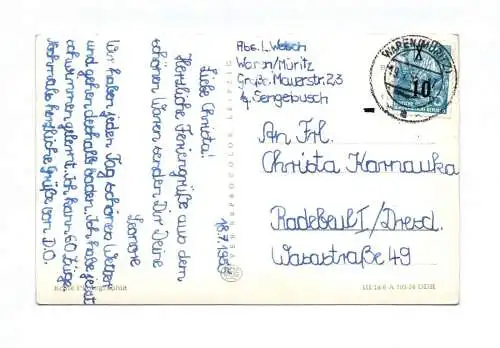 Liebe Christa!
Herzliche Feriengrüße aus dem
schönen Waren senden Dir Deine
Leonore
18.7.195
Wir haben jeden Tag schönes Wetter
und gehen deshalb baden. Ich habe jetzt
schwimmen gelernt. Ich kann 60 Züge.
Nochmals herzliche Grüße von D.O.
Abs. L. Welsch
Waren/Müritz
Große Mauerstr. 23
b. Sengebusch
WAREN (MÜRITZ)
10
An Frl.
Christa Karnauka
Radebeul I/Dresd.
Wasastraße 49
Echte Photographie